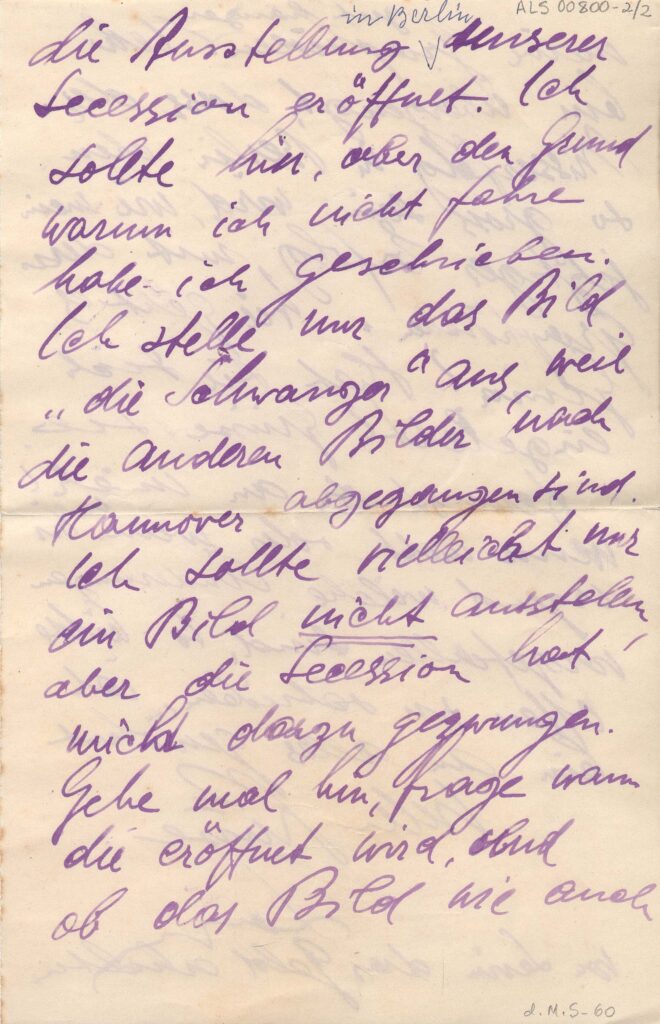 ALS 00800-2/2
in Berlin
die Ausstellung unserer
Secession eröffnet. Ich
sollte hin, aber den Grund
warum ich nicht fahre
habe ich geschrieben.
Ich stelle nur das Bild
„die Schwanger" aus, weil
die anderen Bilder nach
Hannover abgegangen sind.
Ich sollte vielleicht nur
ein Bild nicht ausstellen,
aber die Secession hat
mich dazu gezwungen.
Gehe mal hin, frage wann
die eröffnet wird, und
ob das Bild wie auch
d.M.S-60